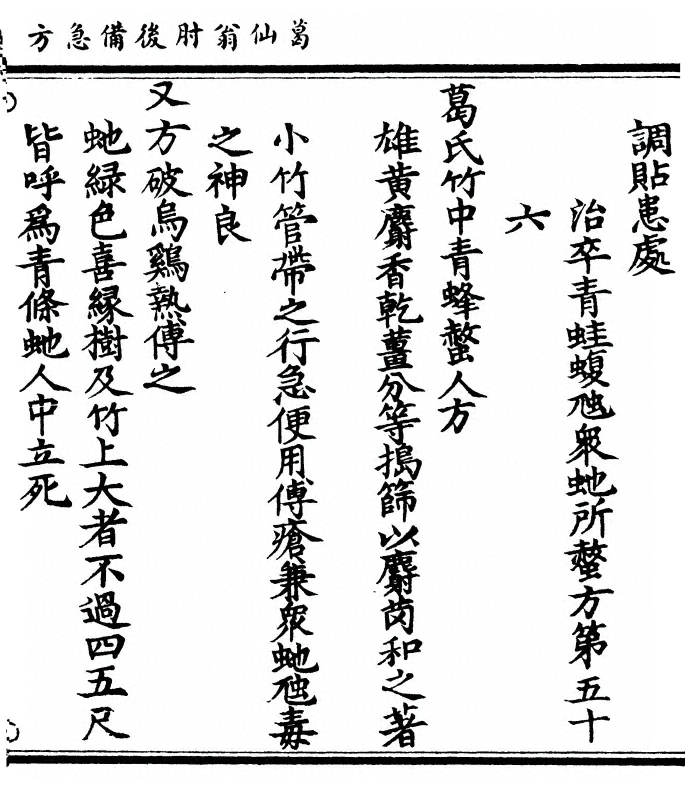 葛仙翁肘後備急方
調貼患處
治卒青蛙蝮虺衆虵所螫方第五十
六
葛氏竹中青蜂螫人方
雄黃麝香乾薑分等搗篩以麝茵和之著
小竹管帶之行急便用傅瘡兼衆虵虺毒
之神良
又方破烏鷄熱傅之
虵緑色喜縁樹及竹上大者不過四五尺
皆呼爲青條虵人中立死